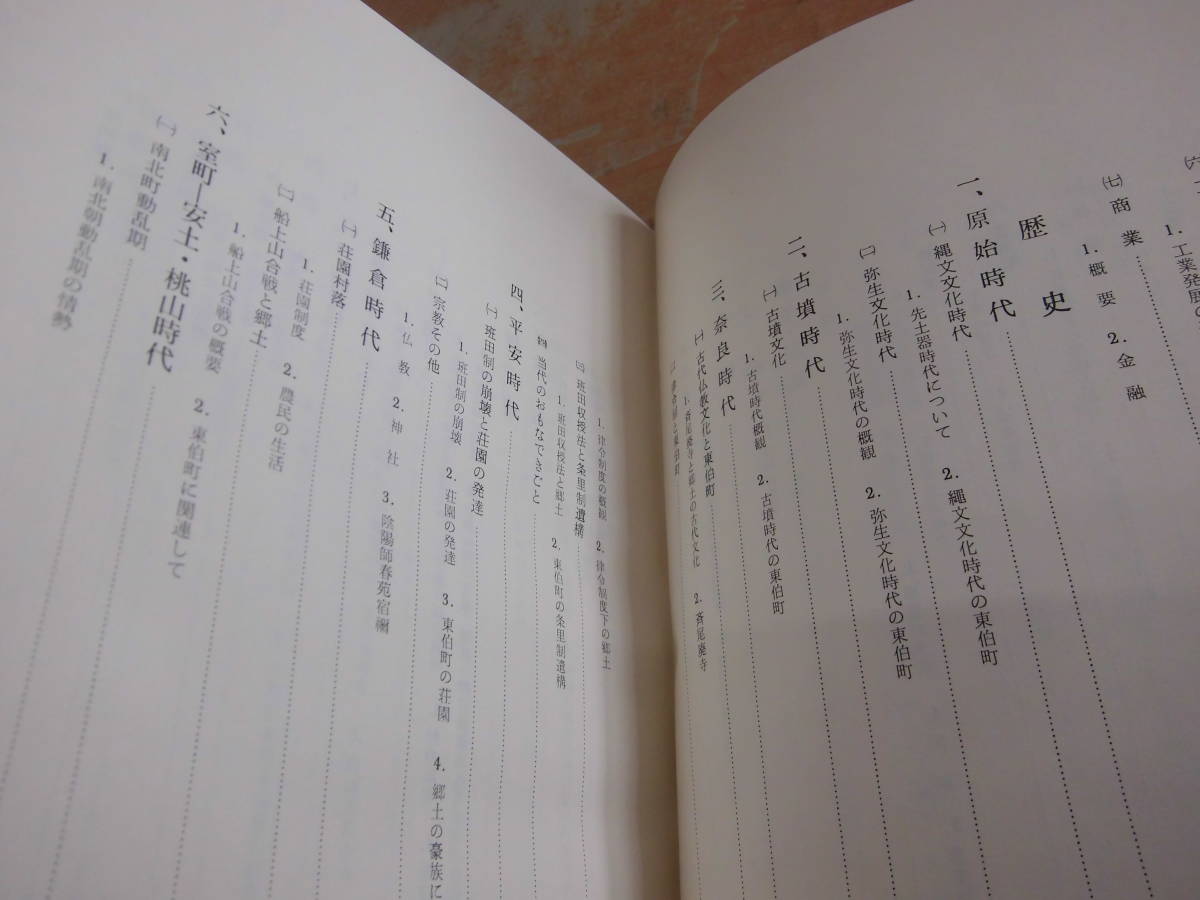 ㈥
1. 工業発展の
㈦ 商業
1. 概要 2. 金融
歴史
一、原始時代
㈠ 縄文文化時代
1. 先土器時代について 2. 縄文文化時代の東伯町
㈡ 弥生文化時代
1. 弥生文化時代の概観 2. 弥生文化時代の東伯町
二、古墳時代
㈠ 古墳文化
1. 古墳時代概観 2. 古墳時代の東伯町
三、奈良時代
㈠ 古代仏教文化と東伯町
1. 斉尾廃寺と郷土の古代文化 2. 斉尾廃寺
と東伯町
1. 律令制度の概観 2. 律令制度下の郷土
㈢ 班田収授法と条里制遺構
1. 班田収授法と郷土 2. 東伯町の条里制遺構
㈣ 当代のおもなできごと
四、平安時代
㈠ 班田制の崩壊と荘園の発達
1. 班田制の崩壊 2. 荘園の発達 3. 東伯町の荘園 4. 郷土の豪族に
㈡ 宗教その他
1. 仏教 2. 神社 3. 陰陽師春苑宿禰
五、鎌倉時代
㈠ 荘園村落
1. 荘園制度 2. 農民の生活
㈡ 船上山合戦と郷土
1. 船上山合戦の概要 2. 東伯町に関連して
六、室町―安土・桃山時代
㈠ 南北町動乱期
1. 南北朝動乱期の情勢